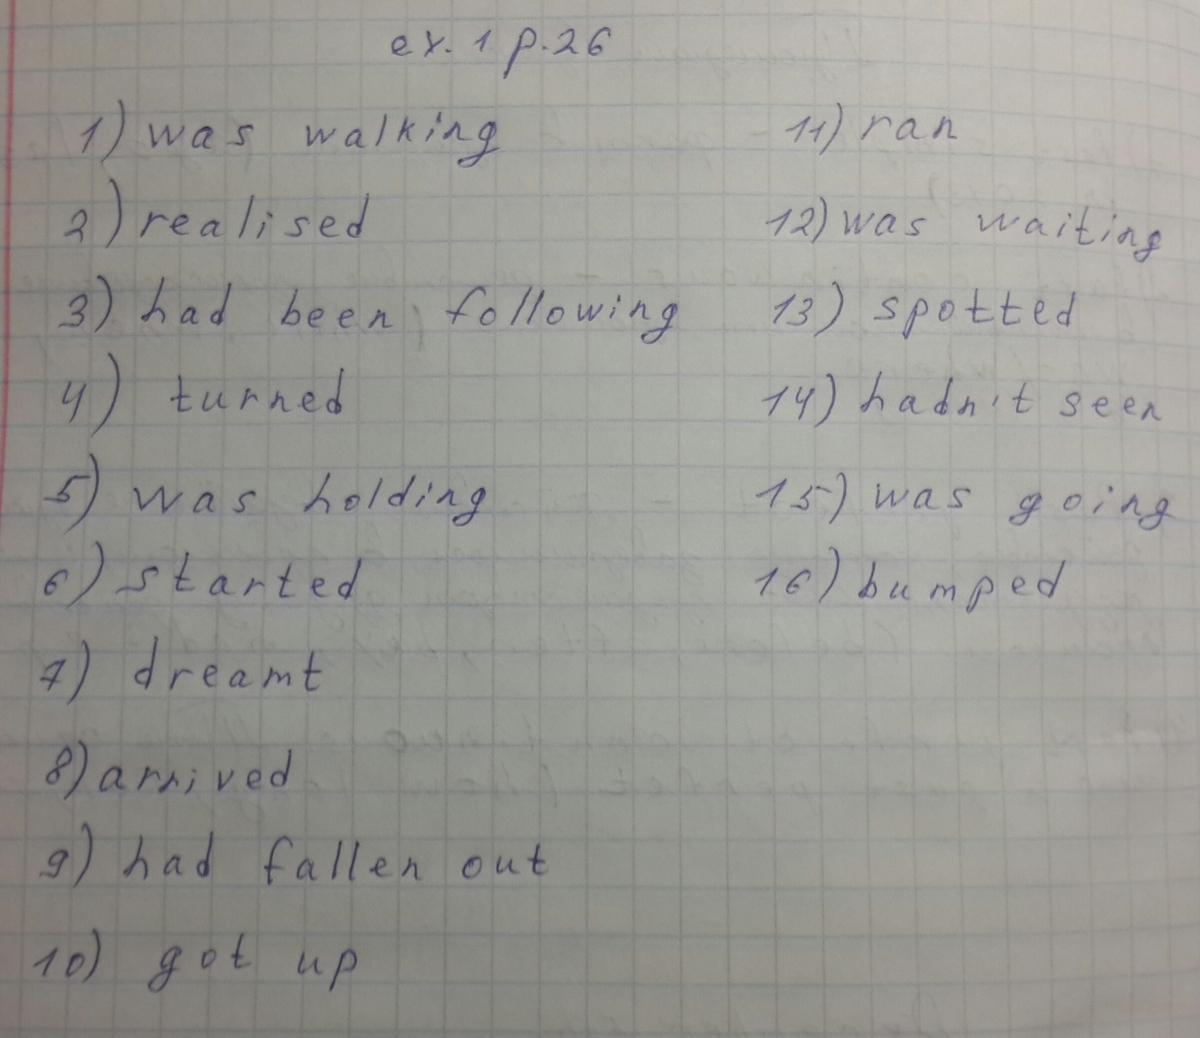 ex. 1 p. 26
1) was walking
2) realised
3) had been following
4) turned
5) was holding
6) started
7) dreamt
8) arrived
9) had fallen out
10) got up
11) ran
12) was waiting
13) spotted
14) hadn't seen
15) was going
16) bumped